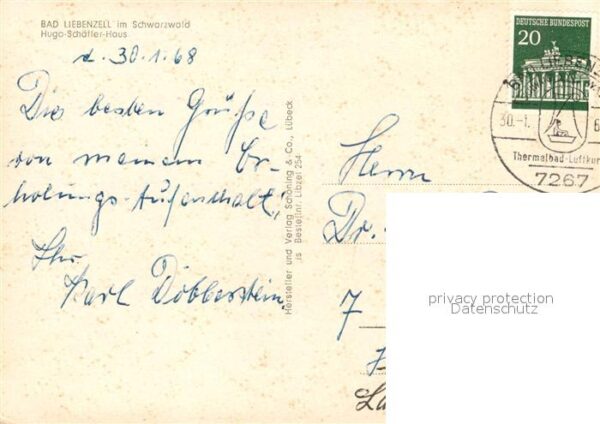 BAD LIEBENZELL im Schwarzwald
Hugo-Schäfler-Haus
d. 30.1.68
Die besten Grüße
von meinem Er-
holungs-Aufenthalt,
Ihr
Karl Döbberstein
Hersteller und Verlag Schöning & Co., Lübeck
Bestellnr. Libzel 254
DEUTSCHE BUNDESPOST
20
BAD LIEBENZ
30.-1. 6
Thermalbad-Luftkur
7267
Herrn
Dr.
7
privacy protection
Datenschutz